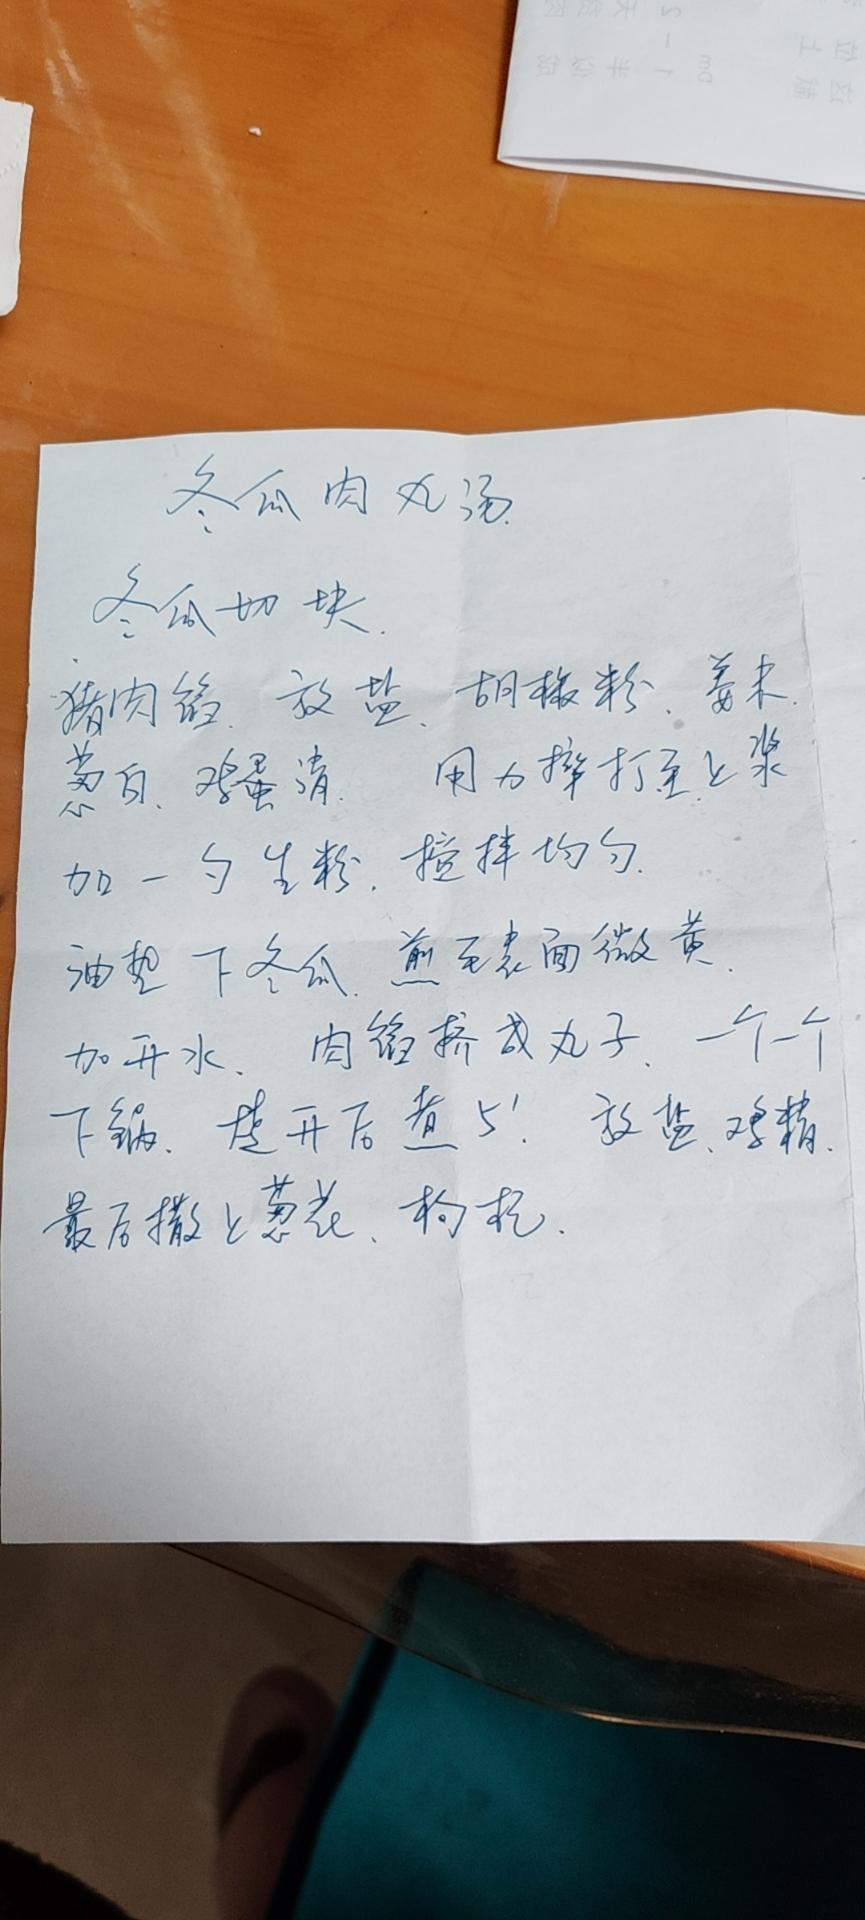 冬瓜肉丸汤.
冬瓜切块.
猪肉馅.放盐、胡椒粉、姜末.
葱白、鸡蛋清. 用力摔打至上浆
加一勺生粉.搅拌均匀.
油热下冬瓜.煎至表面微黄.
加开水、肉馅挤成丸子、一个一个
下锅.烧开后煮5'. 放盐、鸡精.
最后撒上葱花、枸杞.